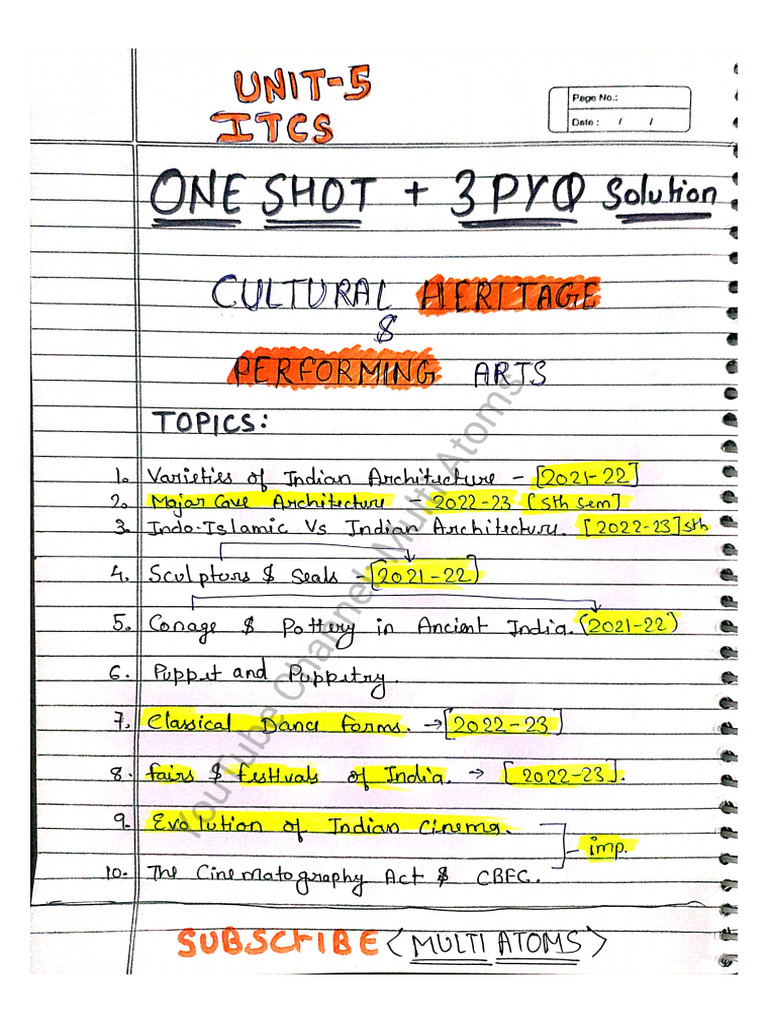 UNIT-5
ITCS
Page No.:
Date : / /
ONE SHOT + 3 PYQ Solution
CULTURAL HERITAGE
&
PERFORMING ARTS
TOPICS:
1. Varieties of Indian Architecture - [2021-22]
2. Major Cave Architecture - 2022-23 [5th sem]
3. Indo-Islamic Vs Indian Architecture. [2022-23] 5th
4. Sculptors & Seals - [2021-22]
5. Conage & Pottery in Ancient India. (2021-22)
6. Puppet and Puppetry.
7. Classical Dance forms. → [2022-23]
8. fairs & festivals of India. → [2022-23].
9. Evolution of Indian Cinema.
imp.
10. The Cinematography Act & CBFC.
SUBSCRIBE (MULTI ATOMS)
YouTube Channel: Multi Atoms